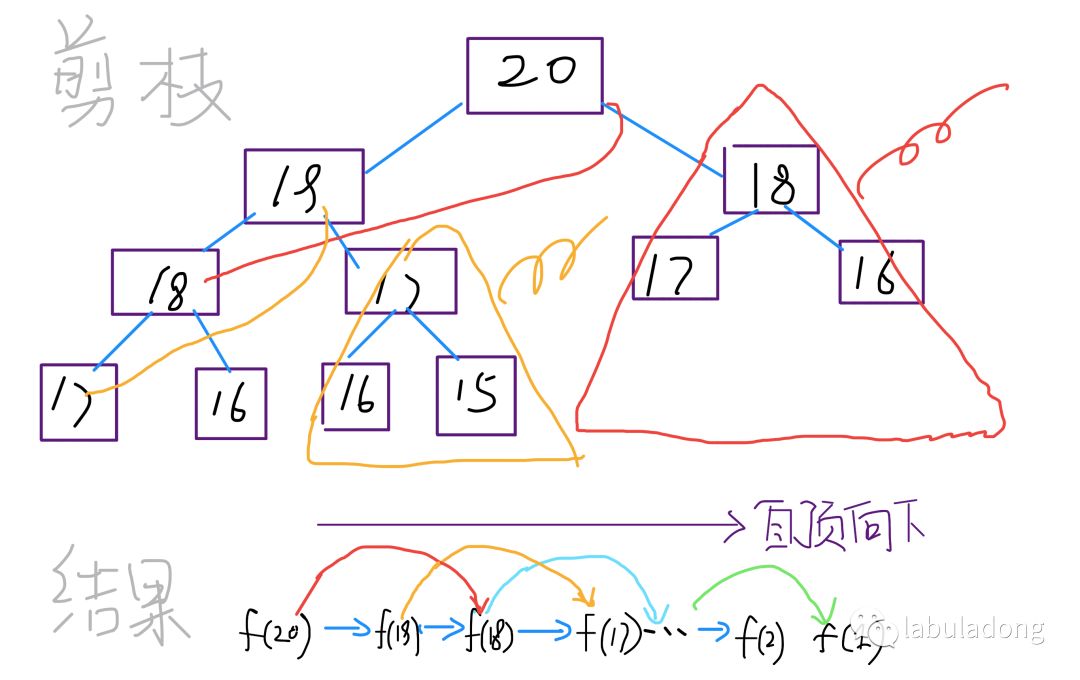 剪枝
20
19
18
18
17
17
16
17
16
16
15
自顶向下
结果
f(20) → f(19) → f(18) → f(17) ··· → f(2) f(2)
labuladong